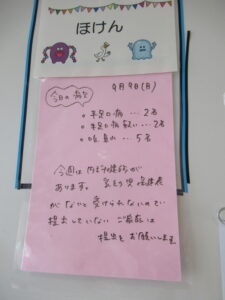 ほけん
9月9日(月)
今日の病欠
・手足口病…2名
・手足口病疑い…2名
・咳、鼻水…5名
今週は内科健診が
あります。
がないと受けられないので
提出していない ご家庭は
提出をお願いします